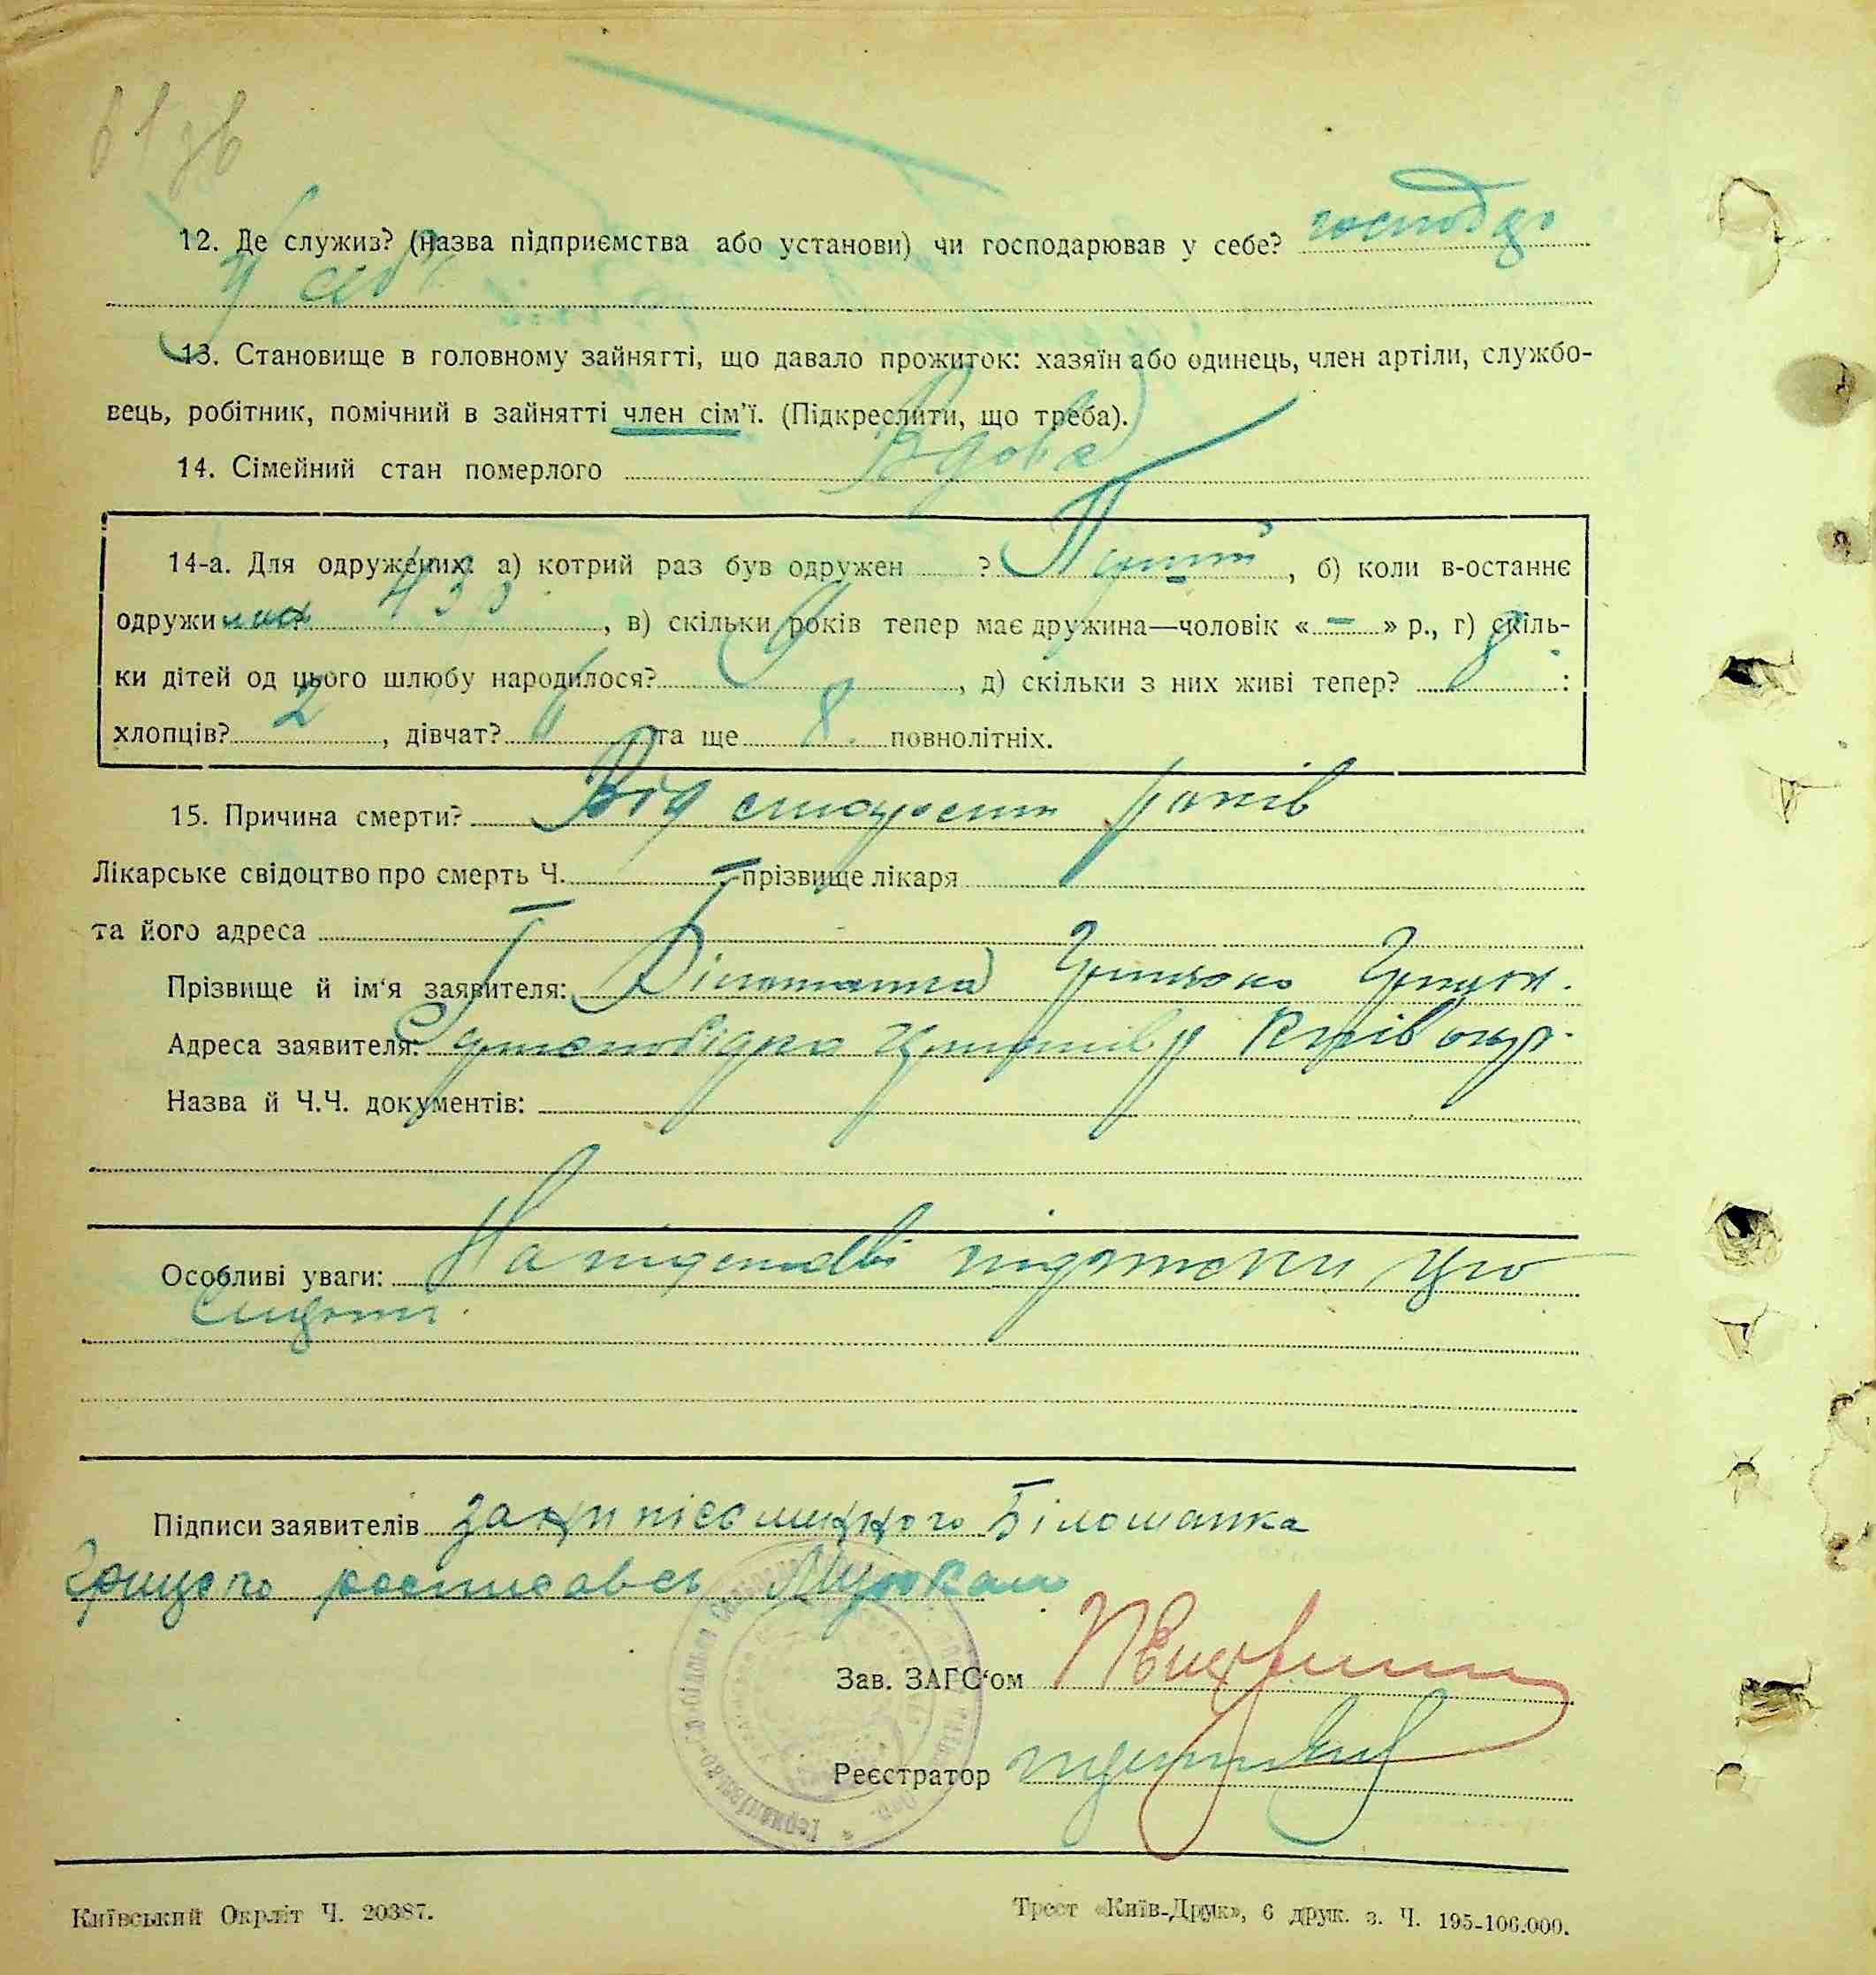 61 зв
12. Де служив? (назва підприємства або установи) чи господарював у себе? господар
у себе
13. Становище в головному зайнятті, що давало прожиток: хазяїн або одинець, член артіли, службо-
вець, робітник, помічний в зайнятті член сім'ї. (Підкреслити, що треба).
14. Сімейний стан померлого Вдова
14-а. Для одружених: а) котрий раз був одружен ? Перший, б) коли в-останнє
одружи лась, в) скільки років тепер має дружина—чоловік «–» р., г) скіль-
ки дітей од цього шлюбу народилося? 9, д) скільки з них живі тепер? 8:
хлопців? 2, дівчат? 6 та ще 8 повнолітніх.
15. Причина смерти? Від старости років
Лікарське свідоцтво про смерть Ч. – прізвище лікаря
та його адреса –
Прізвище й ім'я заявителя: Білошапка Грицько
Адреса заявителя:
Назва й Ч.Ч. документів:
Особливі уваги: На підставі
Підписи заявителів за неписьменного Білошапка
Грицько росписавсь
Зав. ЗАГС'ом
Реєстратор
Київський Окрліт Ч. 20387.
Трест «Київ-Друк», 6 друк. з. Ч. 195-106.000.